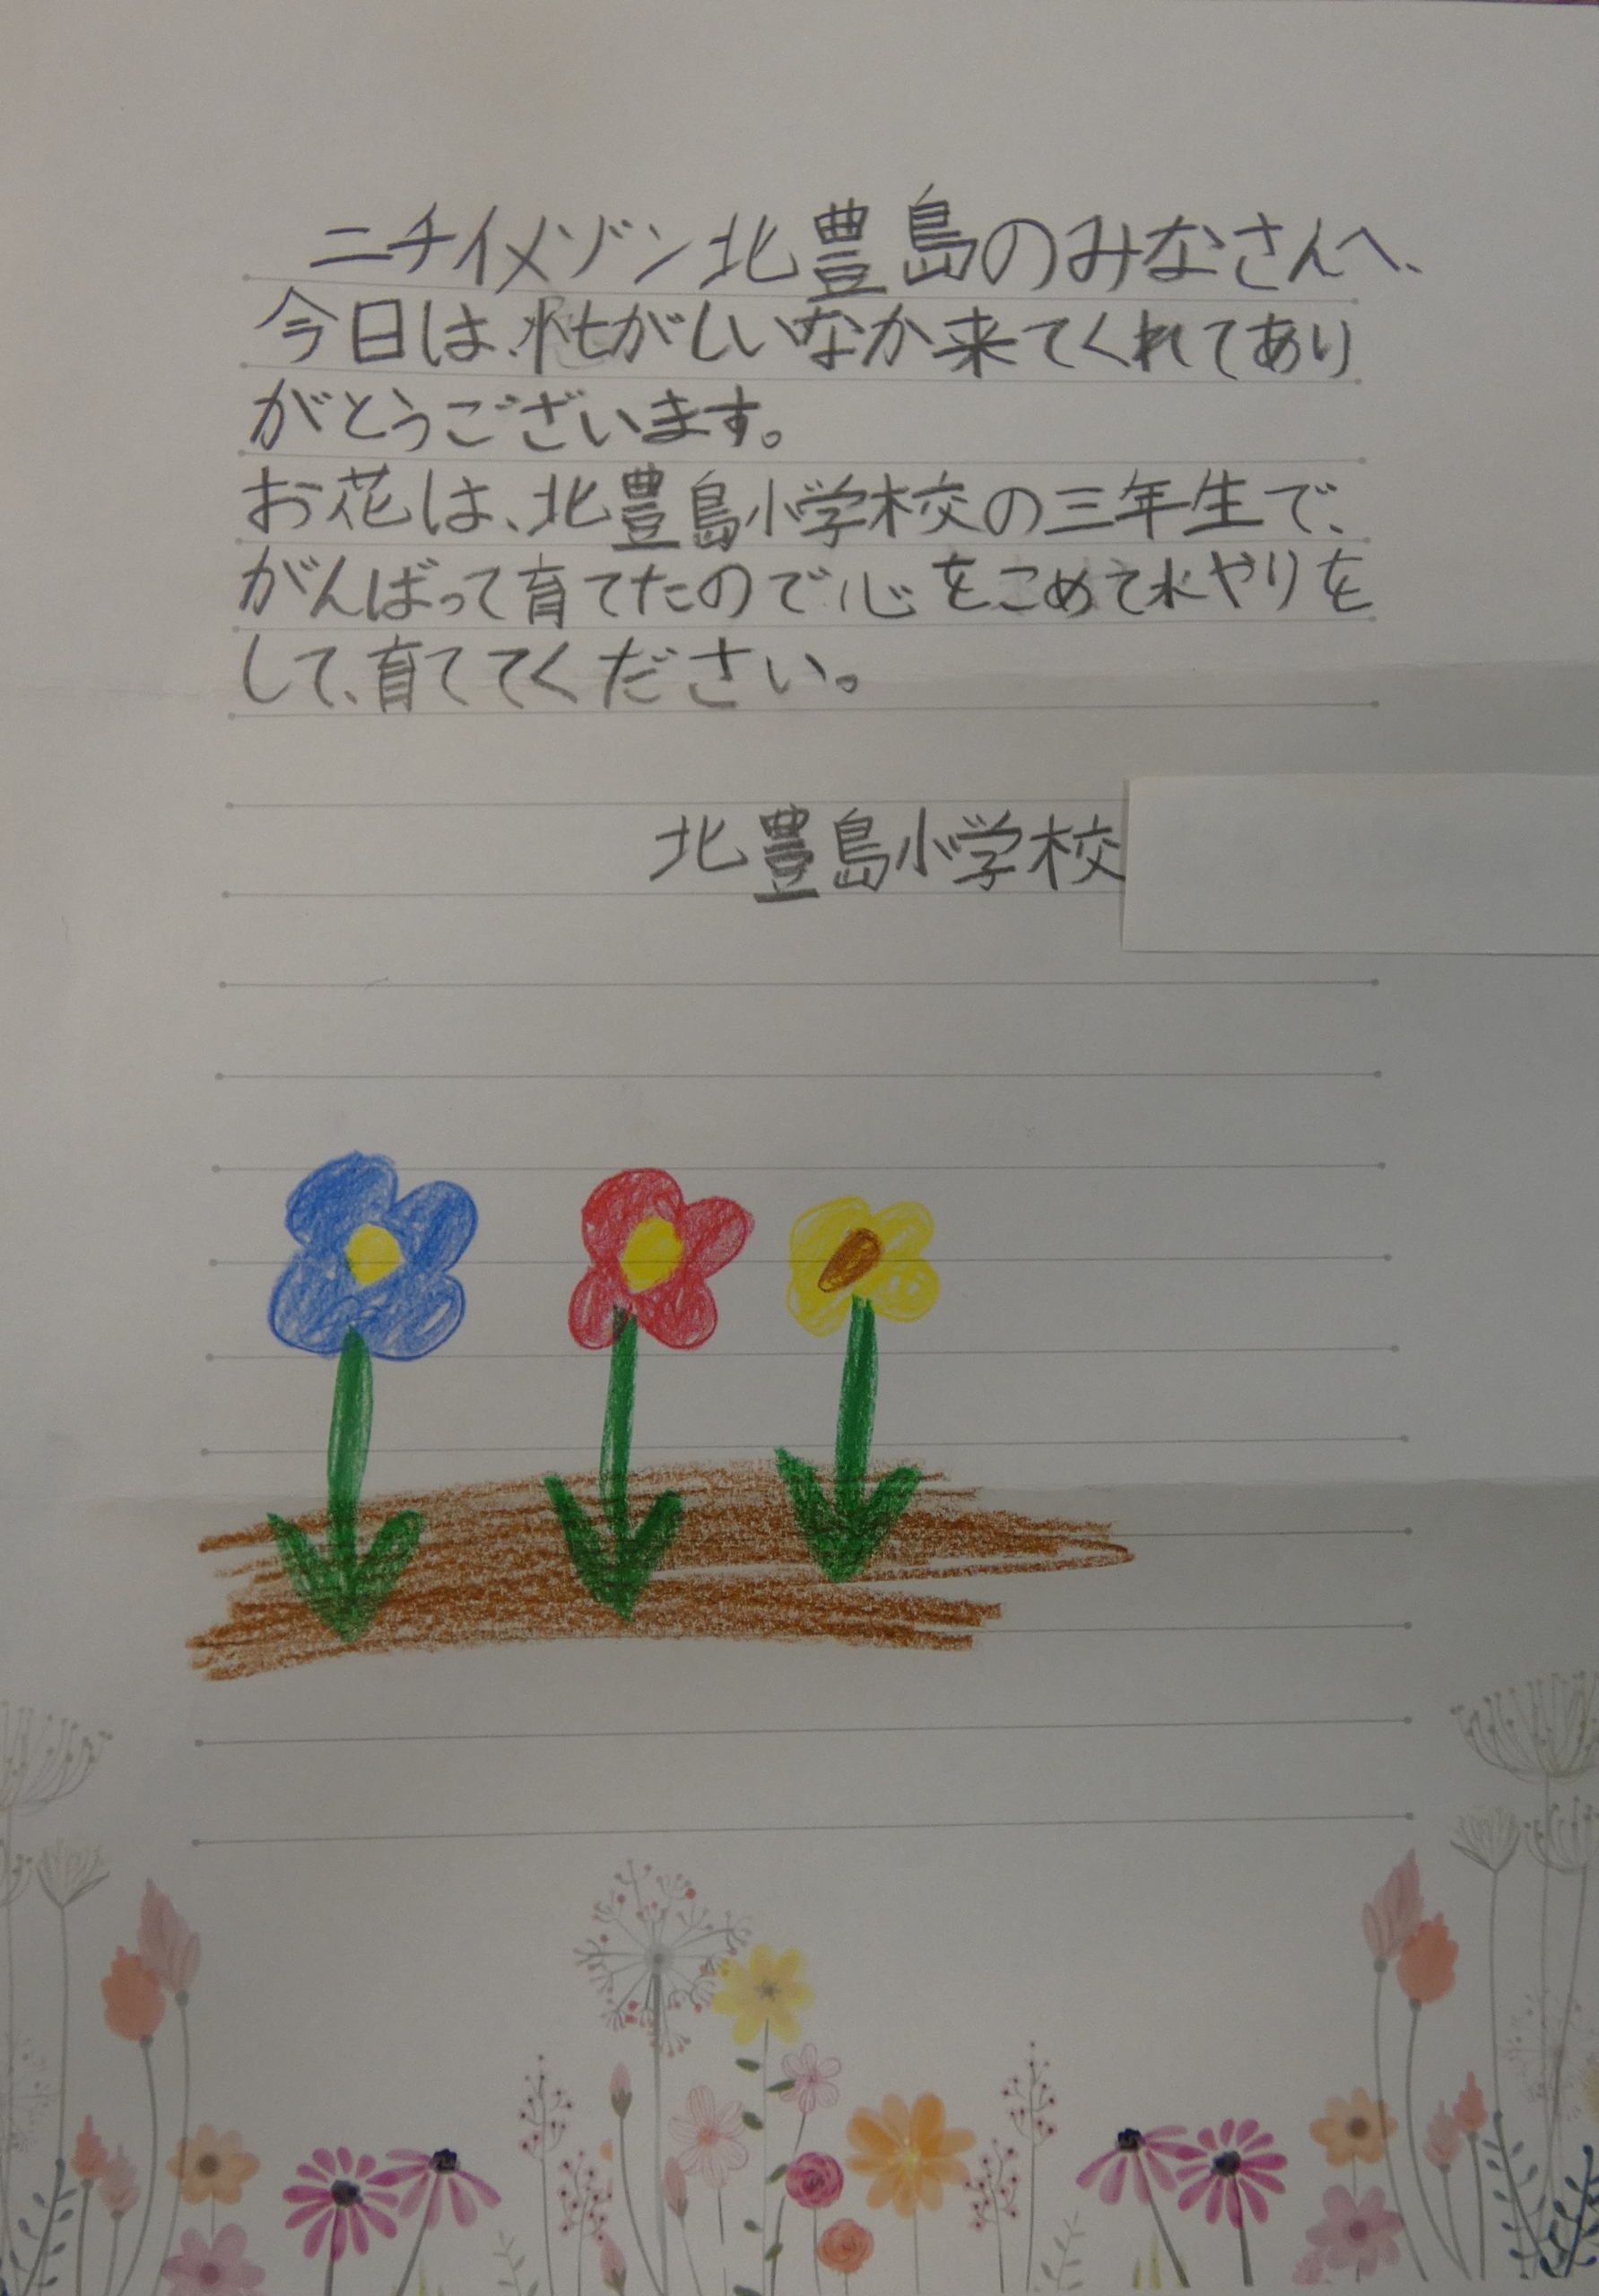 ニチイメゾン北豊島のみなさんへ、
今日は、忙がしいなか来てくれてあり
がとうございます。
お花は、北豊島小学校の三年生で、
がんばって育てたので心をこめて水やりを
して、育ててください。
北豊島小学校